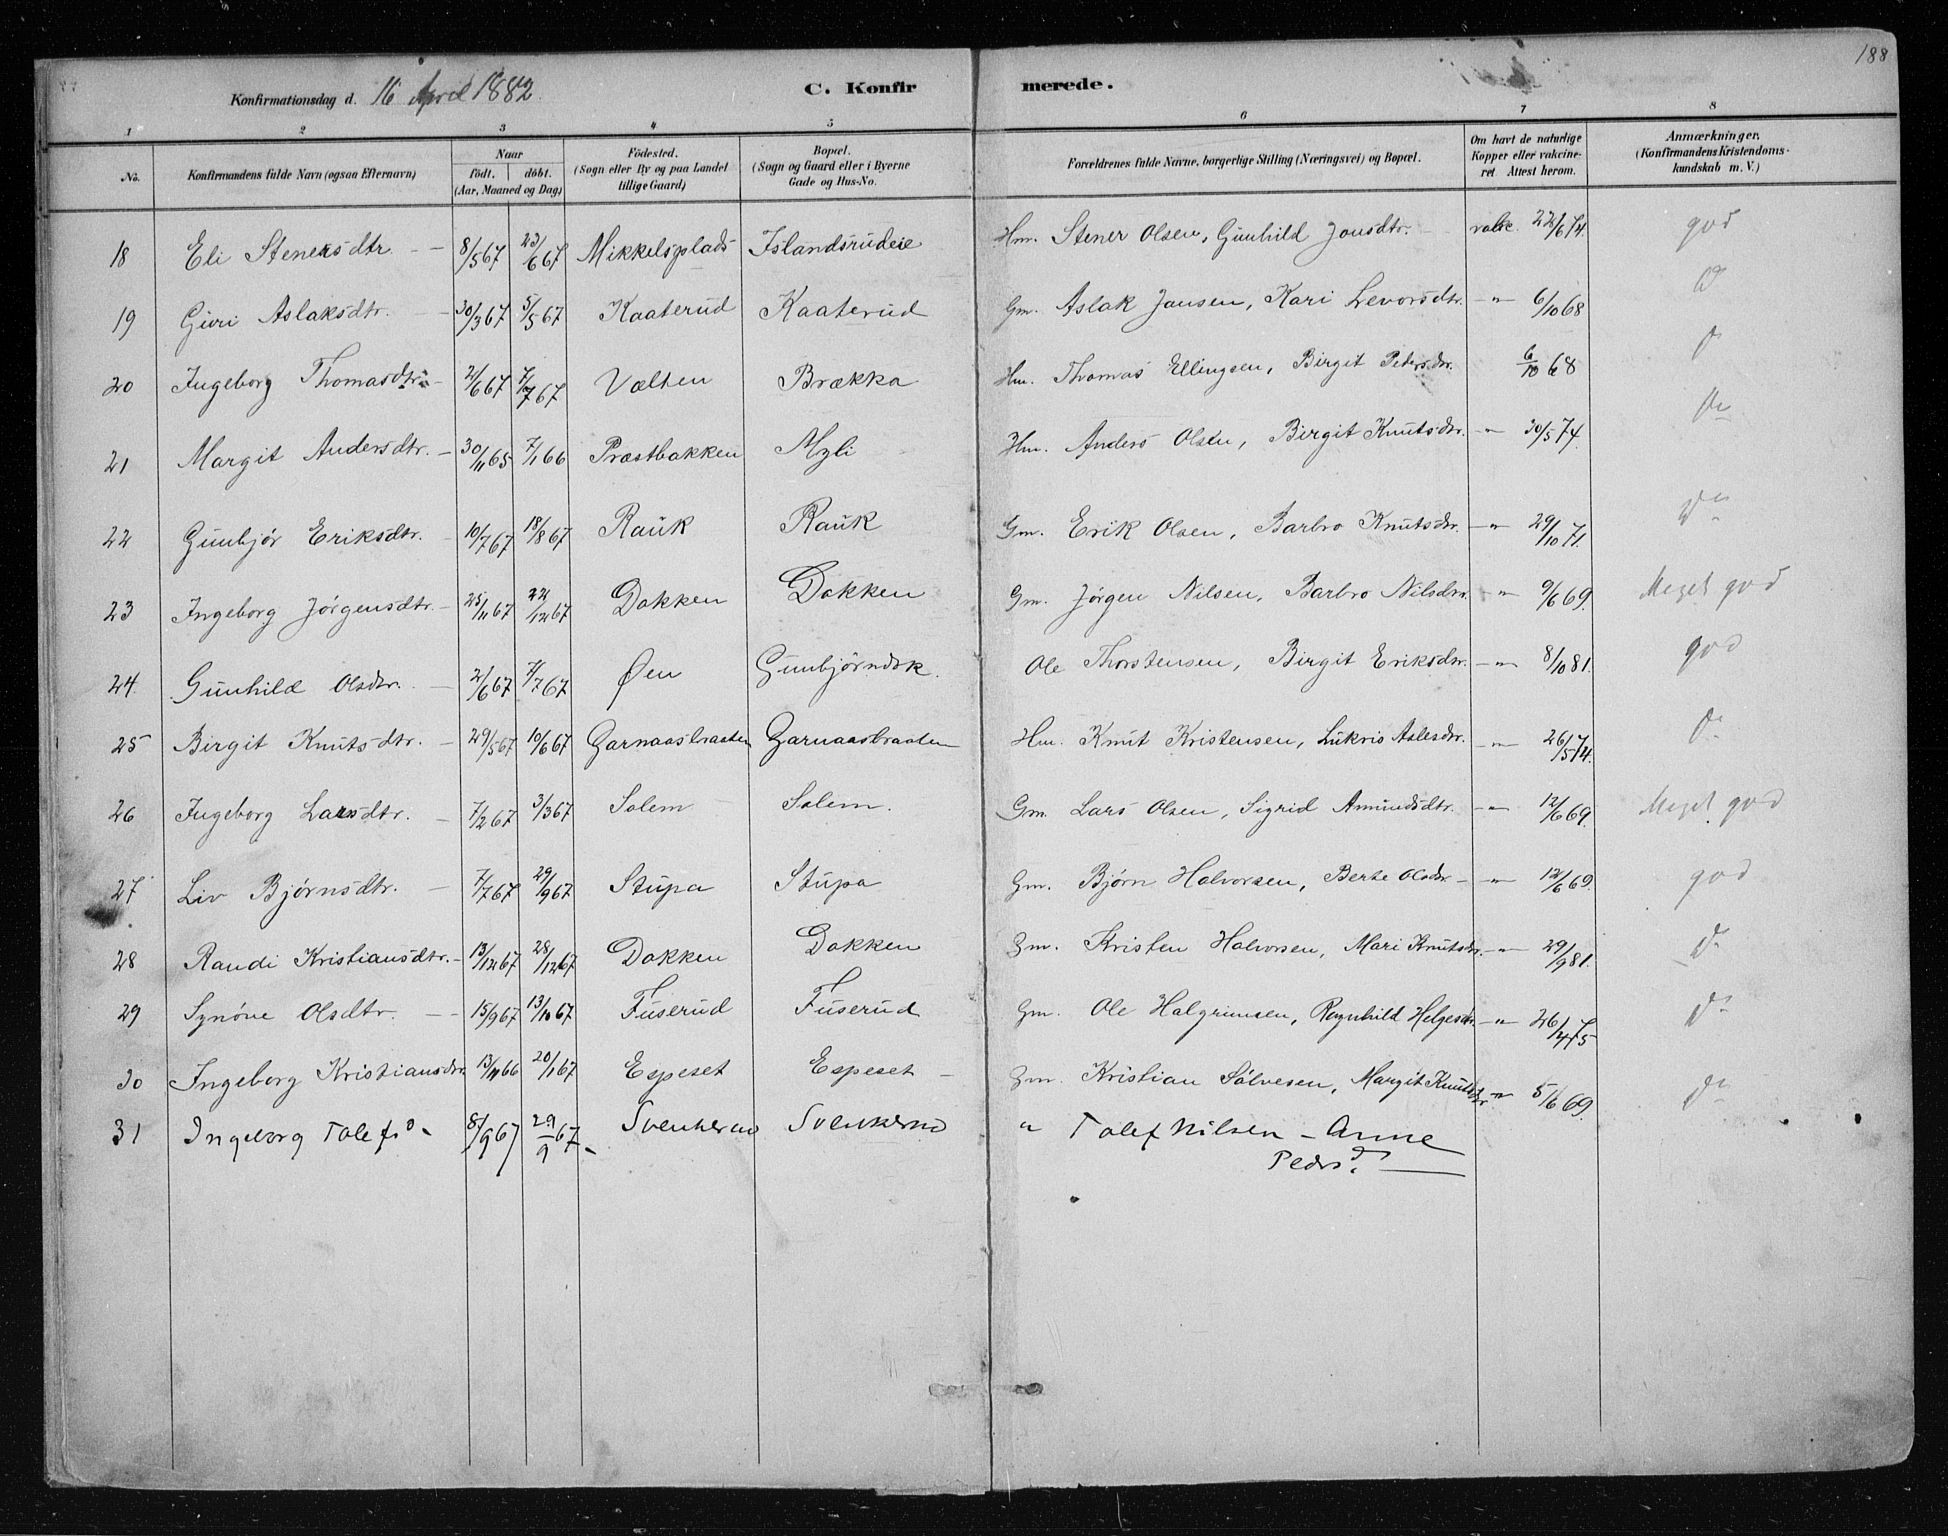 188
Konfirmationsdag d. 16 April 1882. C. Konfirmerede.
1 2 3 4 5 6 7 8
No. Konfirmandens fulde Navn (ogsaa Efternavn) Naar födt. döbt. (Aar, Maaned og Dag) Födested. (Sogn eller By og paa Landet tillige Gaard) Bopæl. (Sogn og Gaard eller i Byerne Gade og Hus-No. Forældrenes fulde Navne, borgerlige Stilling (Næringsvei) og Bopæl. Om havt de naturlige Kopper eller vakcineret Attest herom. Anmærkninger. (Konfirmandens Kristendomskundskab m. V.)
18 Eli Stenersdtr. 8/5 67 23/6 67 Mikkelsplads Islandsrudeie Hm. Stener Olsen, Gunhild Jonsdtr. vakc. 22/6 74. god
19 Guri Aslaksdtr. 30/3 67 5/5 67 Kaaterud Kaaterud Gm. Aslak Jansen, Kari Levorsdtr. -"- 6/10 68 D
20 Ingeborg Thomasdtr. 2/6 67 7/7 67 Vælten Brækka Hm. Thomas Ellingsen, Birgit Petersdtr. 6/10 68 Do
21 Margit Andersdtr. 30/11 65 7/1 66 Præstbakken Myli Hm. Anders Olsen, Birgit Knutsdtr. -"- 30/5 74. Do
22 Gunbjør Eriksdtr. 10/7 67 18/8 67 Rauk Rauk Gm. Erik Olsen, Barbro Knutsdtr. -"- 29/10 71. Do
23 Ingeborg Jørgensdtr. 25/11 67 22/12 67 Dokken Dokken Gm. Jørgen Nilsen, Barbro Nilsdtr. -"- 9/6 69. Meget god
24. Gunhild Olsdtr. 2/6 67 7/7 67 Øen Gunbjørndsk. Ole Thorstensen, Birgit Eriksdtr. -"- 8/10 81. god
25 Birgit Knutsdtr. 29/5 67 10/6 67 Garnaasbraaten Garnaasbraaten Hm. Knut Kristensen, Lukris Aslesdtr. -"- 26/5 74. Do
26 Ingeborg Larsdtr. 7/2 67 3/3 67 Solem Solem. Gm. Lars Olsen, Sigrid Amundsdtr. -"- 12/6 69. Meget god
27 Liv Bjørnsdtr. 7/7 67 29/9 67 Stupa Stupa Gm. Bjørn Halvorsen, Berte Olsdtr -"- 12/6 69. god
28 Randi Kristiansdtr. 13/12 67 28/12 67 Dokken Dokken Gm. Kristen Halvorsen, Mari Knutsdtr. -"- 29/9 81. Do
29 Synøve Olsdtr. 15/9 67 13/10 67 Fuserud Fuserud Gm. Ole Halgrimsen, Ragnhild Helgesdtr. -"- 26/4 75 Do
30 Ingeborg Kristiansdtr. 13/11 66 20/1 67 Espeset Espeset Gm. Kristian Sølvesen, Margit Knutsdtr -"- 5/6 69. Do
31 Ingeborg Tolefsd. 8/9 67 29/9 67. Svenkerud Svenkerud " Tolef Nilsen - Anne
Pedersd.